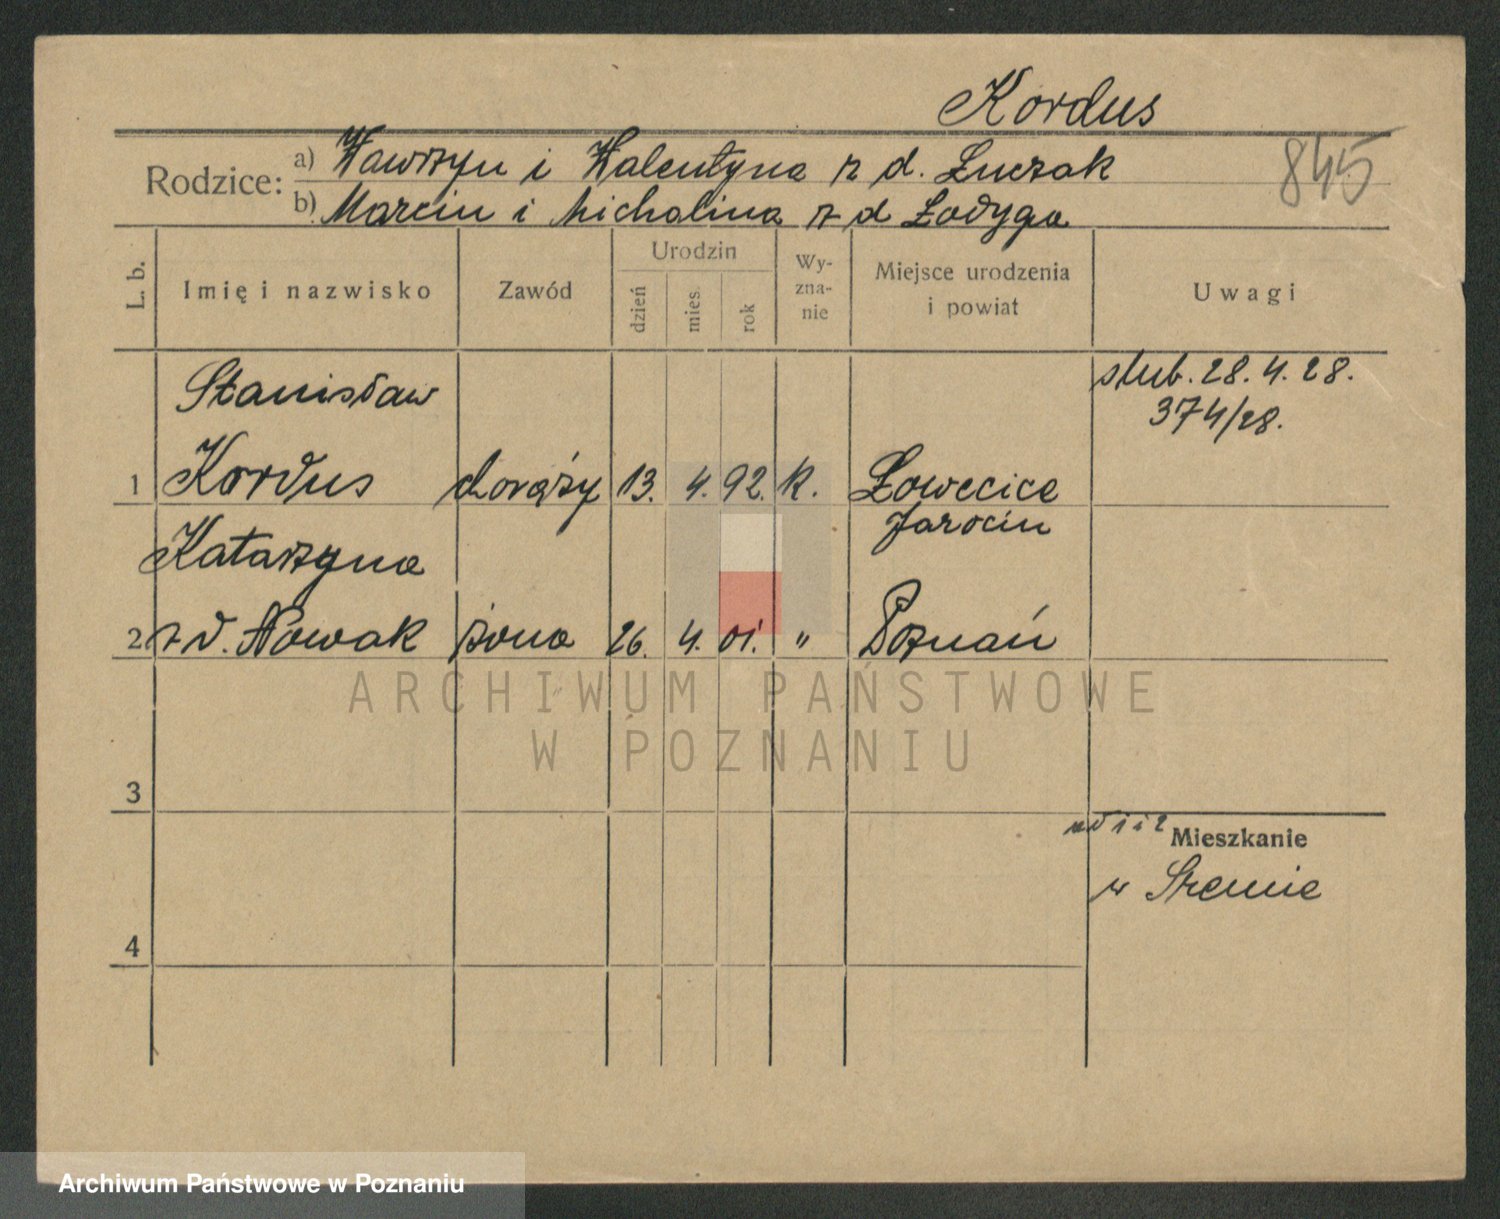 Kordus
845
Rodzice:
a) Wawrzyn i Walentyna z d. Łuczak
b) Marcin i Michalina z d Łodyga
L. b.
Imię i nazwisko
Zawód
Urodzin
dzień
mies.
rok
Wy-
zna-
nie
Miejsce urodzenia
i powiat
Uwagi
Stanisław
ślub. 28. 4. 28.
374/28.
1 Kordus chorąży 13. 4. 92. K. Łowęcice
Jarocin
Katarzyna
2 z d. Nowak żona 26. 4. 01. " Poznań
ARCHIWUM PAŃSTWOWE
W POZNANIU
3
ad 1 i 2 Mieszkanie
w Śremie
4
Archiwum Państwowe w Poznaniu